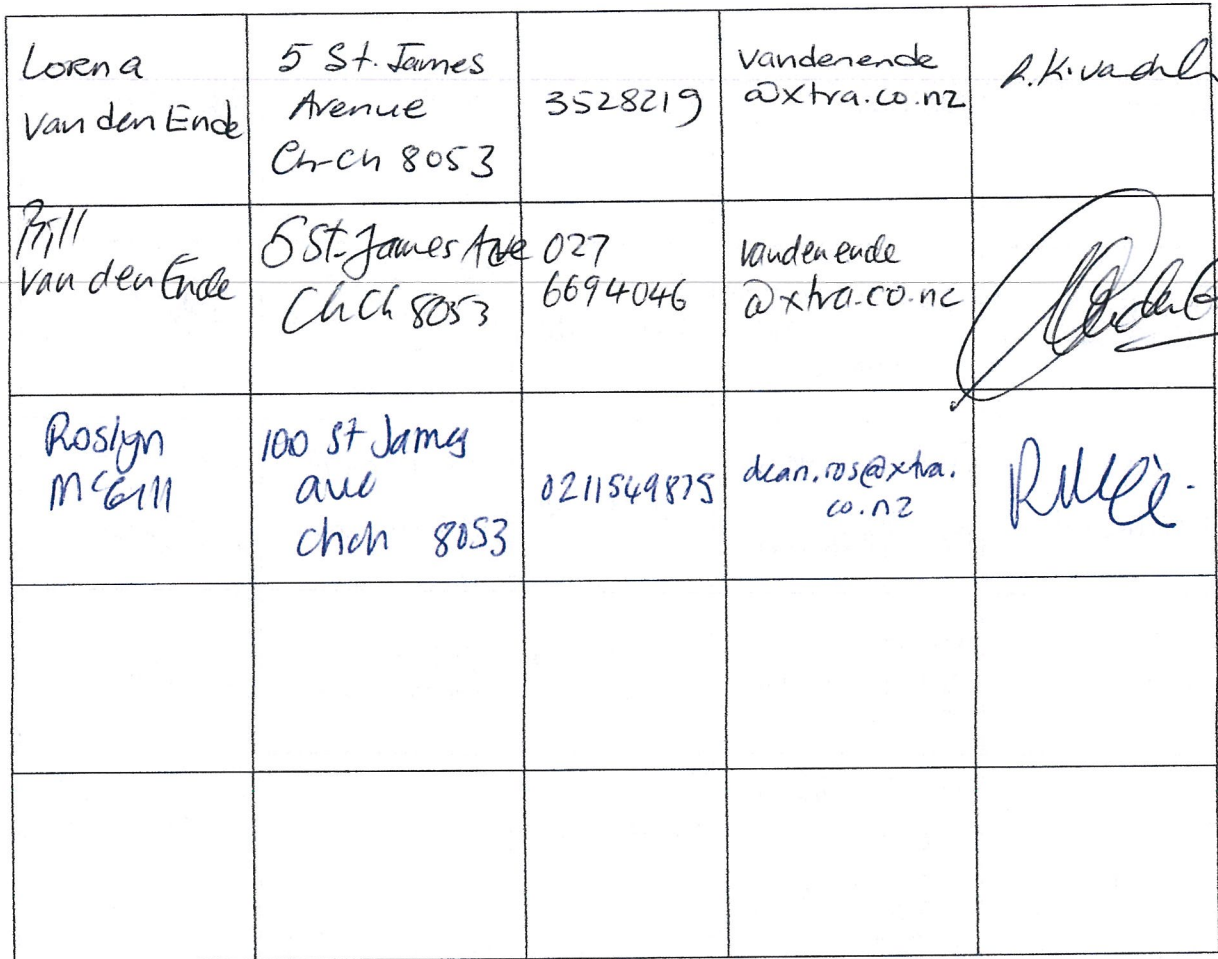 Lorena
van den Ende
5 St. James
Avenue
Ch-Ch 8053
3528219
vandenende
@xtra.co.nz
Bill
van den Ende
5 St. James Ave
ChCh 8053
027
6694046
vandenende
@xtra.co.nz
Roslyn
McGill
100 St James
ave
chch 8053
0211549875
dean.ros@xtra.
co.nz